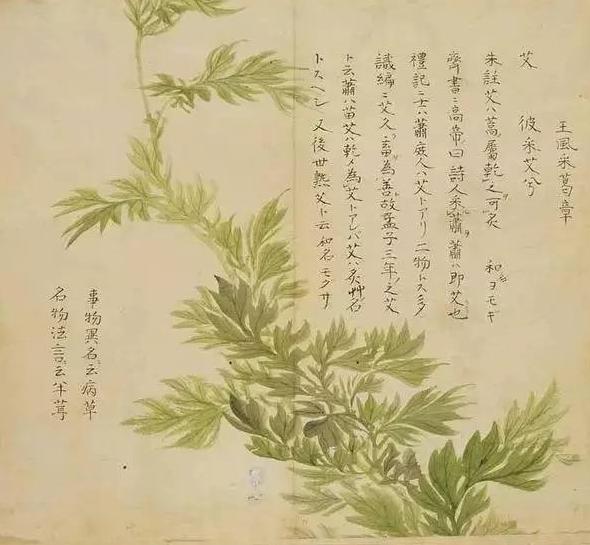 王風采葛章
艾 彼采艾兮
朱註艾ハ蒿屬乾之可炙 和名ヨモギ
齊書ニ高帝曰詩人采蕭蕭ハ即艾也
禮記ニ士ハ蕭庶人ハ艾トアリ二物トス
識編ニ艾久畜為善故孟子三年之艾
ト云蕭ハ苗艾ハ乾〆為艾トアレバ艾ハ炙艸名
トスヘシ又後世熟艾ト云和名モクサ
事物異名ニ云病草
名物法言ニ云半